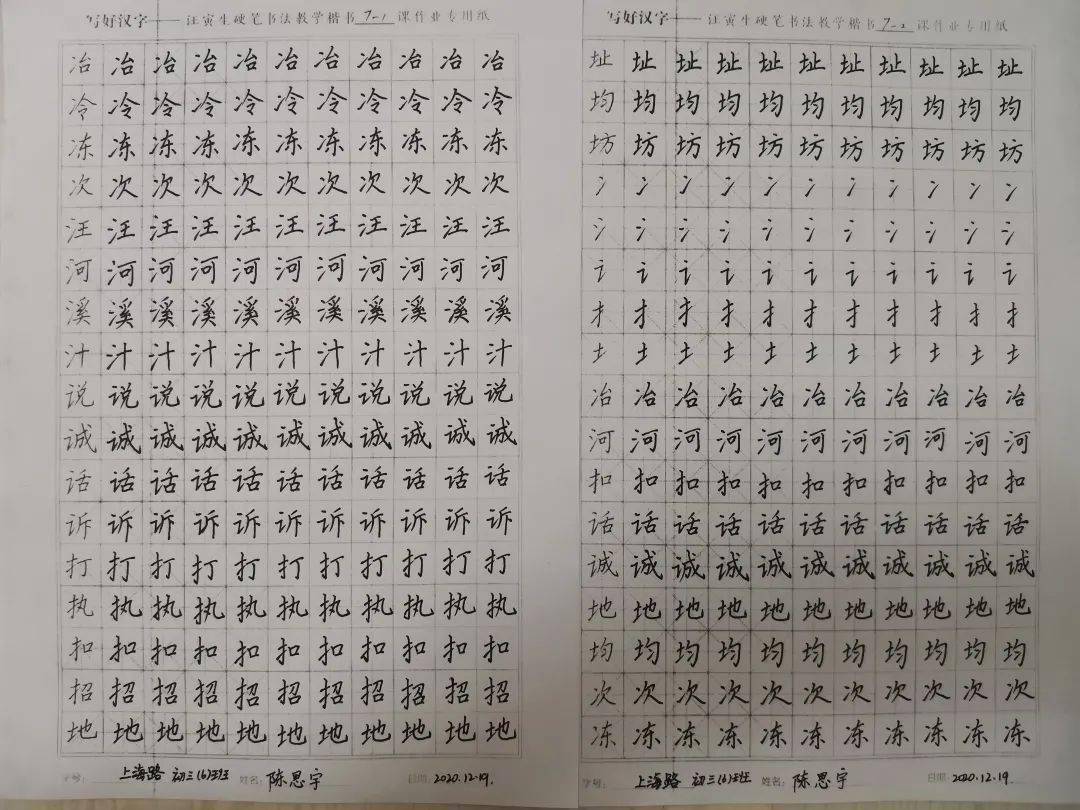 写好汉字——汪寅生硬笔书法教学楷书7-1课作业专用纸
冶冶冶冶冶冶冶冶冶冶冶
冷冷冷冷冷冷冷冷冷冷冷
冻冻冻冻冻冻冻冻冻冻冻
次次次次次次次次次次次
汪汪汪汪汪汪汪汪汪汪汪
河河河河河河河河河河河
溪溪溪溪溪溪溪溪溪溪溪
汁汁汁汁汁汁汁汁汁汁汁
说说说说说说说说说说说
诚诚诚诚诚诚诚诚诚诚诚
话话话话话话话话话话话
诉诉诉诉诉诉诉诉诉诉诉
打打打打打打打打打打打
执执执执执执执执执执执
扣扣扣扣扣扣扣扣扣扣扣
招招招招招招招招招招招
地地地地地地地地地地地
学号: 上海路 初三(6)班 姓名: 陈思宇 日期: 2020.12.19.
写好汉字——汪寅生硬笔书法教学楷书7-2课作业专用纸
址址址址址址址址址址址
均均均均均均均均均均均
坊坊坊坊坊坊坊坊坊坊坊
冫冫冫冫冫冫冫冫冫冫冫
氵氵氵氵氵氵氵氵氵氵氵
讠讠讠讠讠讠讠讠讠讠讠
扌扌扌扌扌扌扌扌扌扌扌
土土土土土土土土土土土
冶冶冶冶冶冶冶冶冶冶冶
河河河河河河河河河河河
扣扣扣扣扣扣扣扣扣扣扣
话话话话话话话话话话话
诚诚诚诚诚诚诚诚诚诚诚
地地地地地地地地地地地
均均均均均均均均均均均
次次次次次次次次次次次
冻冻冻冻冻冻冻冻冻冻冻
学号: 上海路 初三(6)班 姓名: 陈思宇 日期: 2020.12.19.